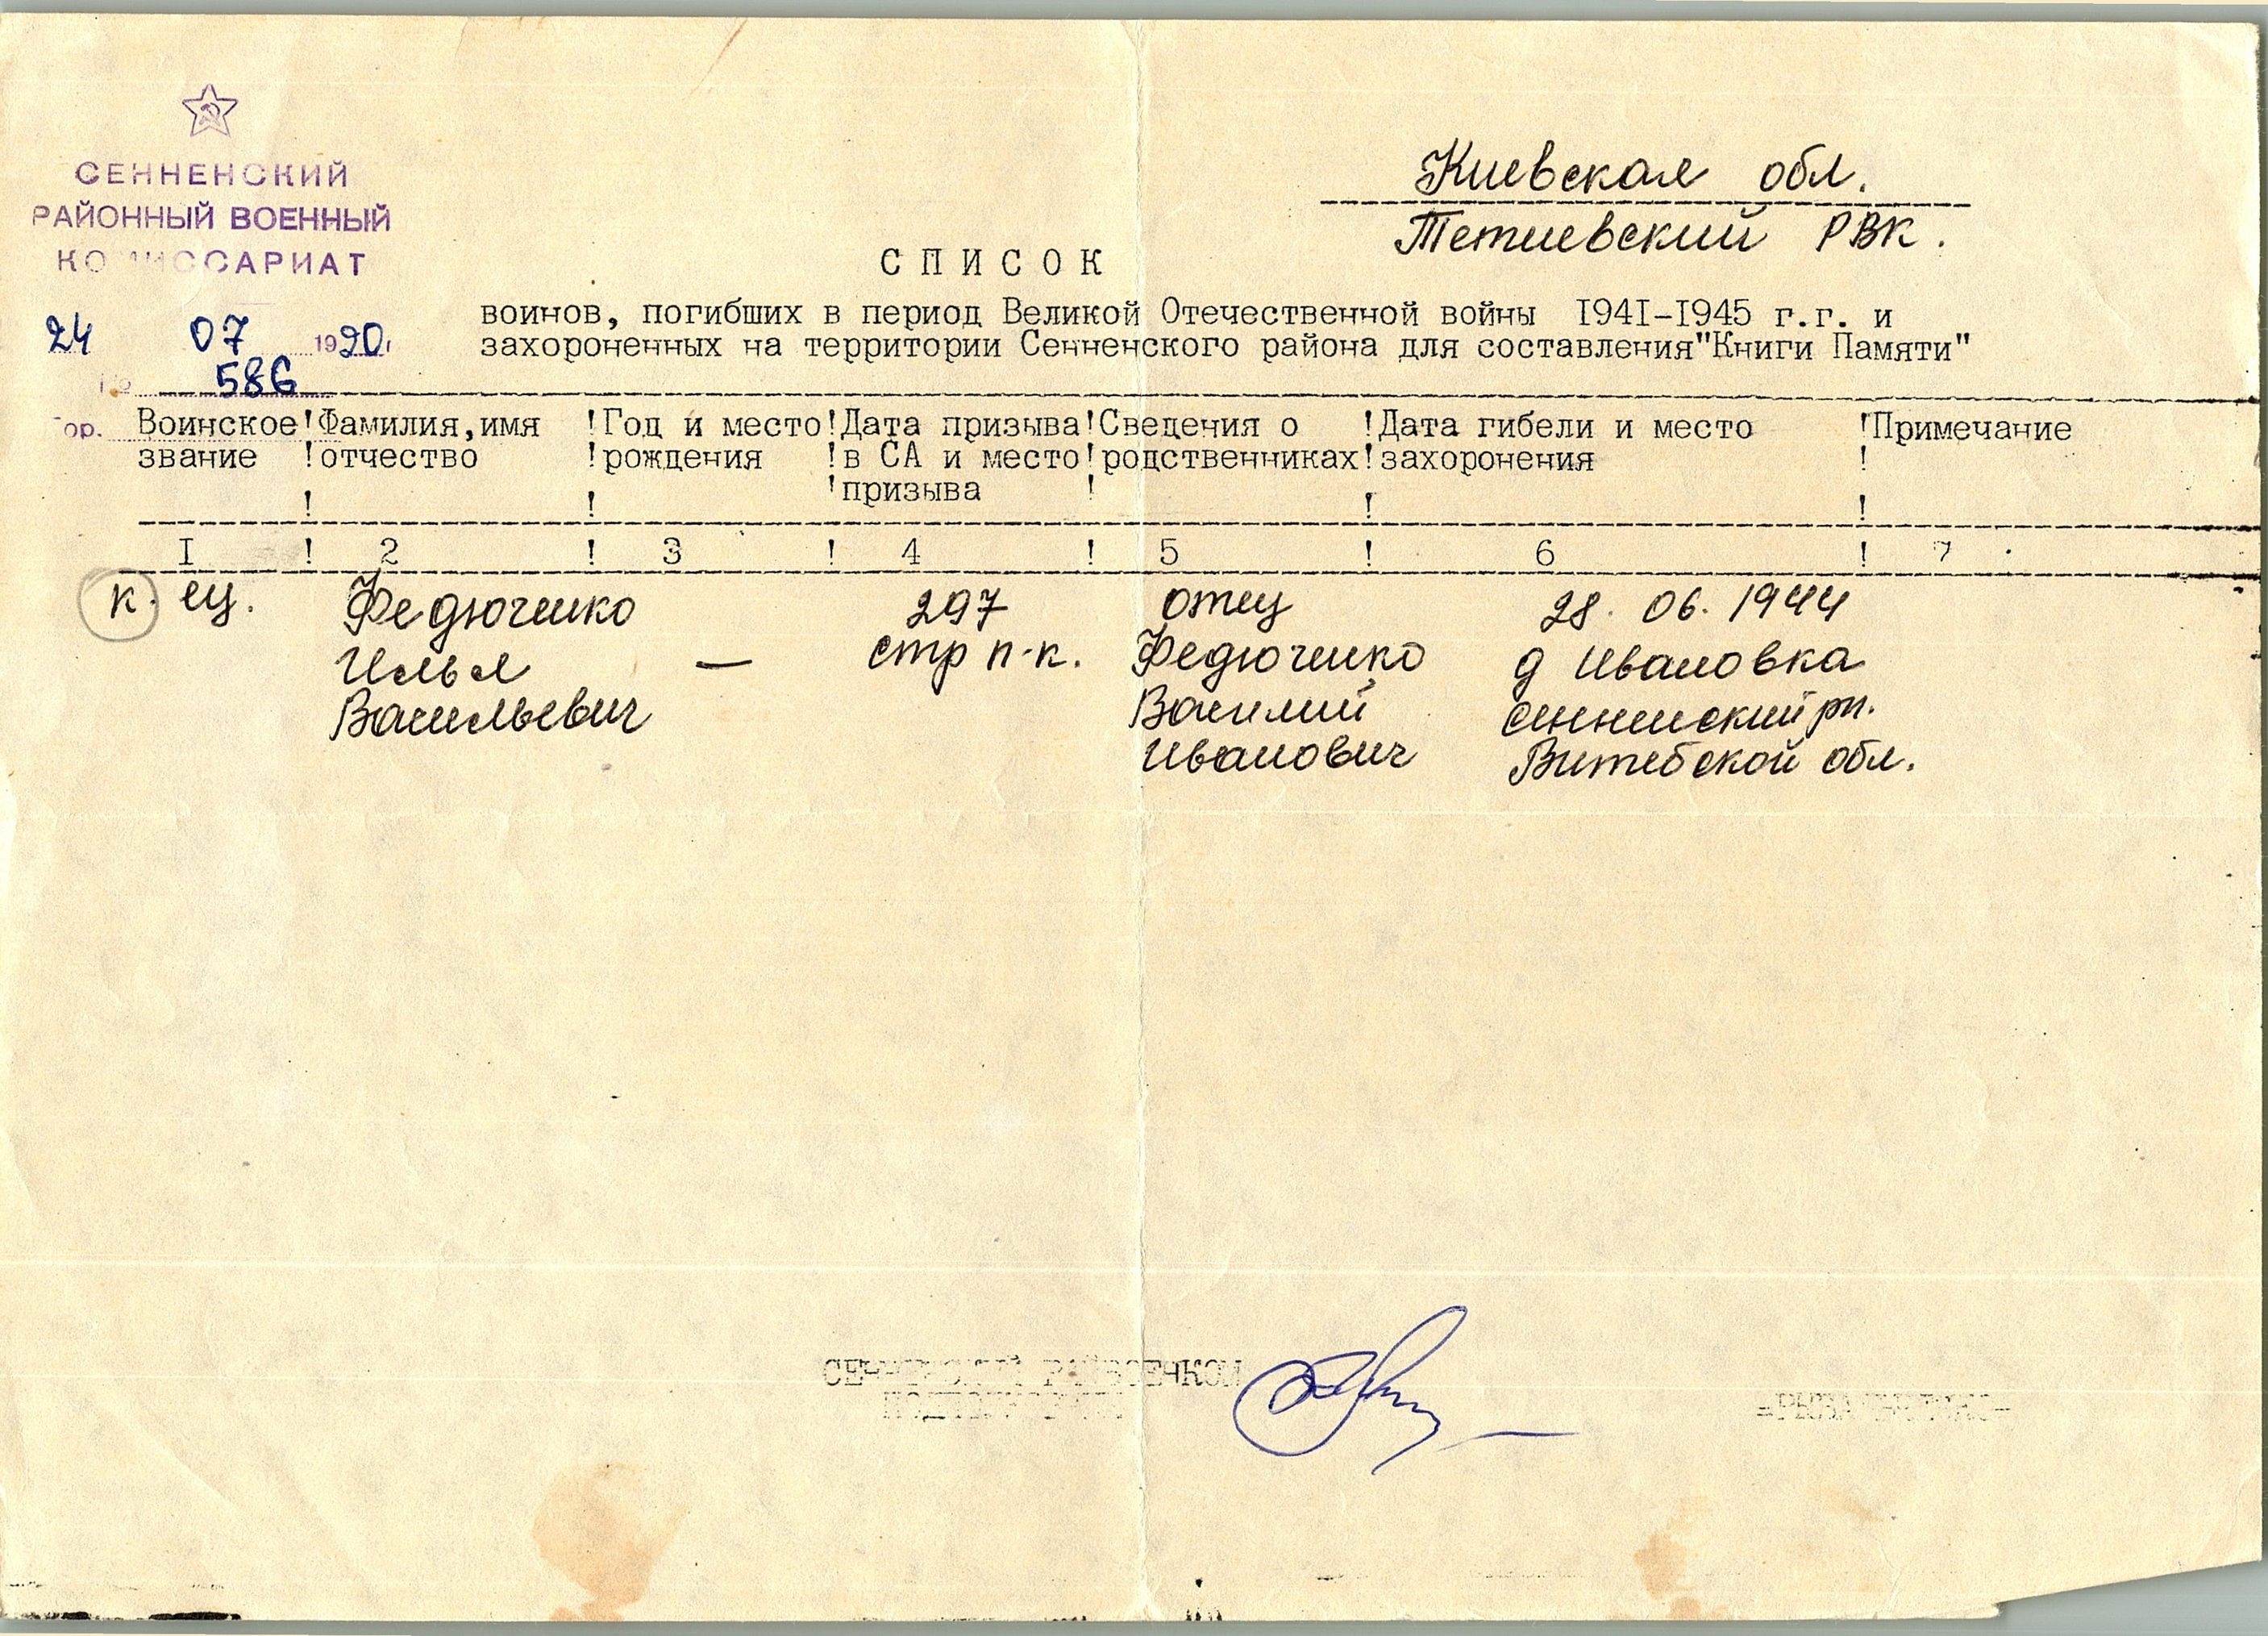 СЕННЕНСКИЙ
РАЙОННЫЙ ВОЕННЫЙ
КОМИССАРИАТ
24 07 1990
586
гор.
Киевская обл.
Тетиевский РВК.
СПИСОК
воинов, погибших в период Великой Отечественной войны I94I-I945 г.г. и
захороненных на территории Сенненского района для составления"Книги Памяти"
Воинское !Фамилия,имя !Год и место!Дата призыва!Сведения о !Дата гибели и место !Примечание
звание !отчество !рождения !в СА и место!родственниках!захоронения !
! ! !призыва ! ! !
I ! 2 ! 3 ! 4 ! 5 ! 6 ! 7
к. ец. Федюченко 297 отец 28. 06. 1944
Илья — стр п-к. Федюченко д Ивановка
Васильевич Василий Сенненский рн.
Иванович Витебской обл.
СЕННЕНСКИЙ РАЙВОЕНКОМ